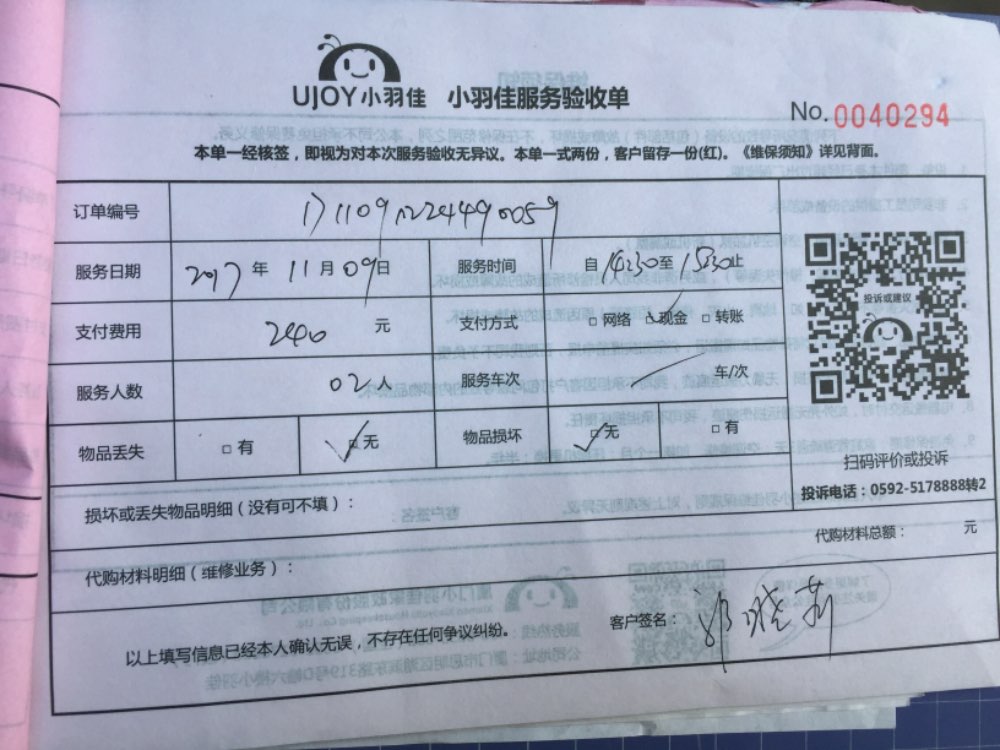 UJOY小羽佳 小羽佳服务验收单
No.0040294
本单一经核签，即视为对本次服务验收无异议。本单一式两份，客户留存一份(红)。《维保须知》详见背面。
订单编号
服务日期 2017年 11月 09日 服务时间 自 14:30至 15:30止
支付费用 2400 元 支付方式 □ 网络 □ 现金 □ 转账
服务人数 02人 服务车次 车/次
物品丢失 □ 有 □ 无 物品损坏 □ 无 □ 有
投诉或建议
扫码评价或投诉
投诉电话：0592-5178888转2
损坏或丢失物品明细（没有可不填）：
代购材料总额： 元
代购材料明细（维修业务）：
以上填写信息已经本人确认无误，不存在任何争议纠纷。 客户签名：